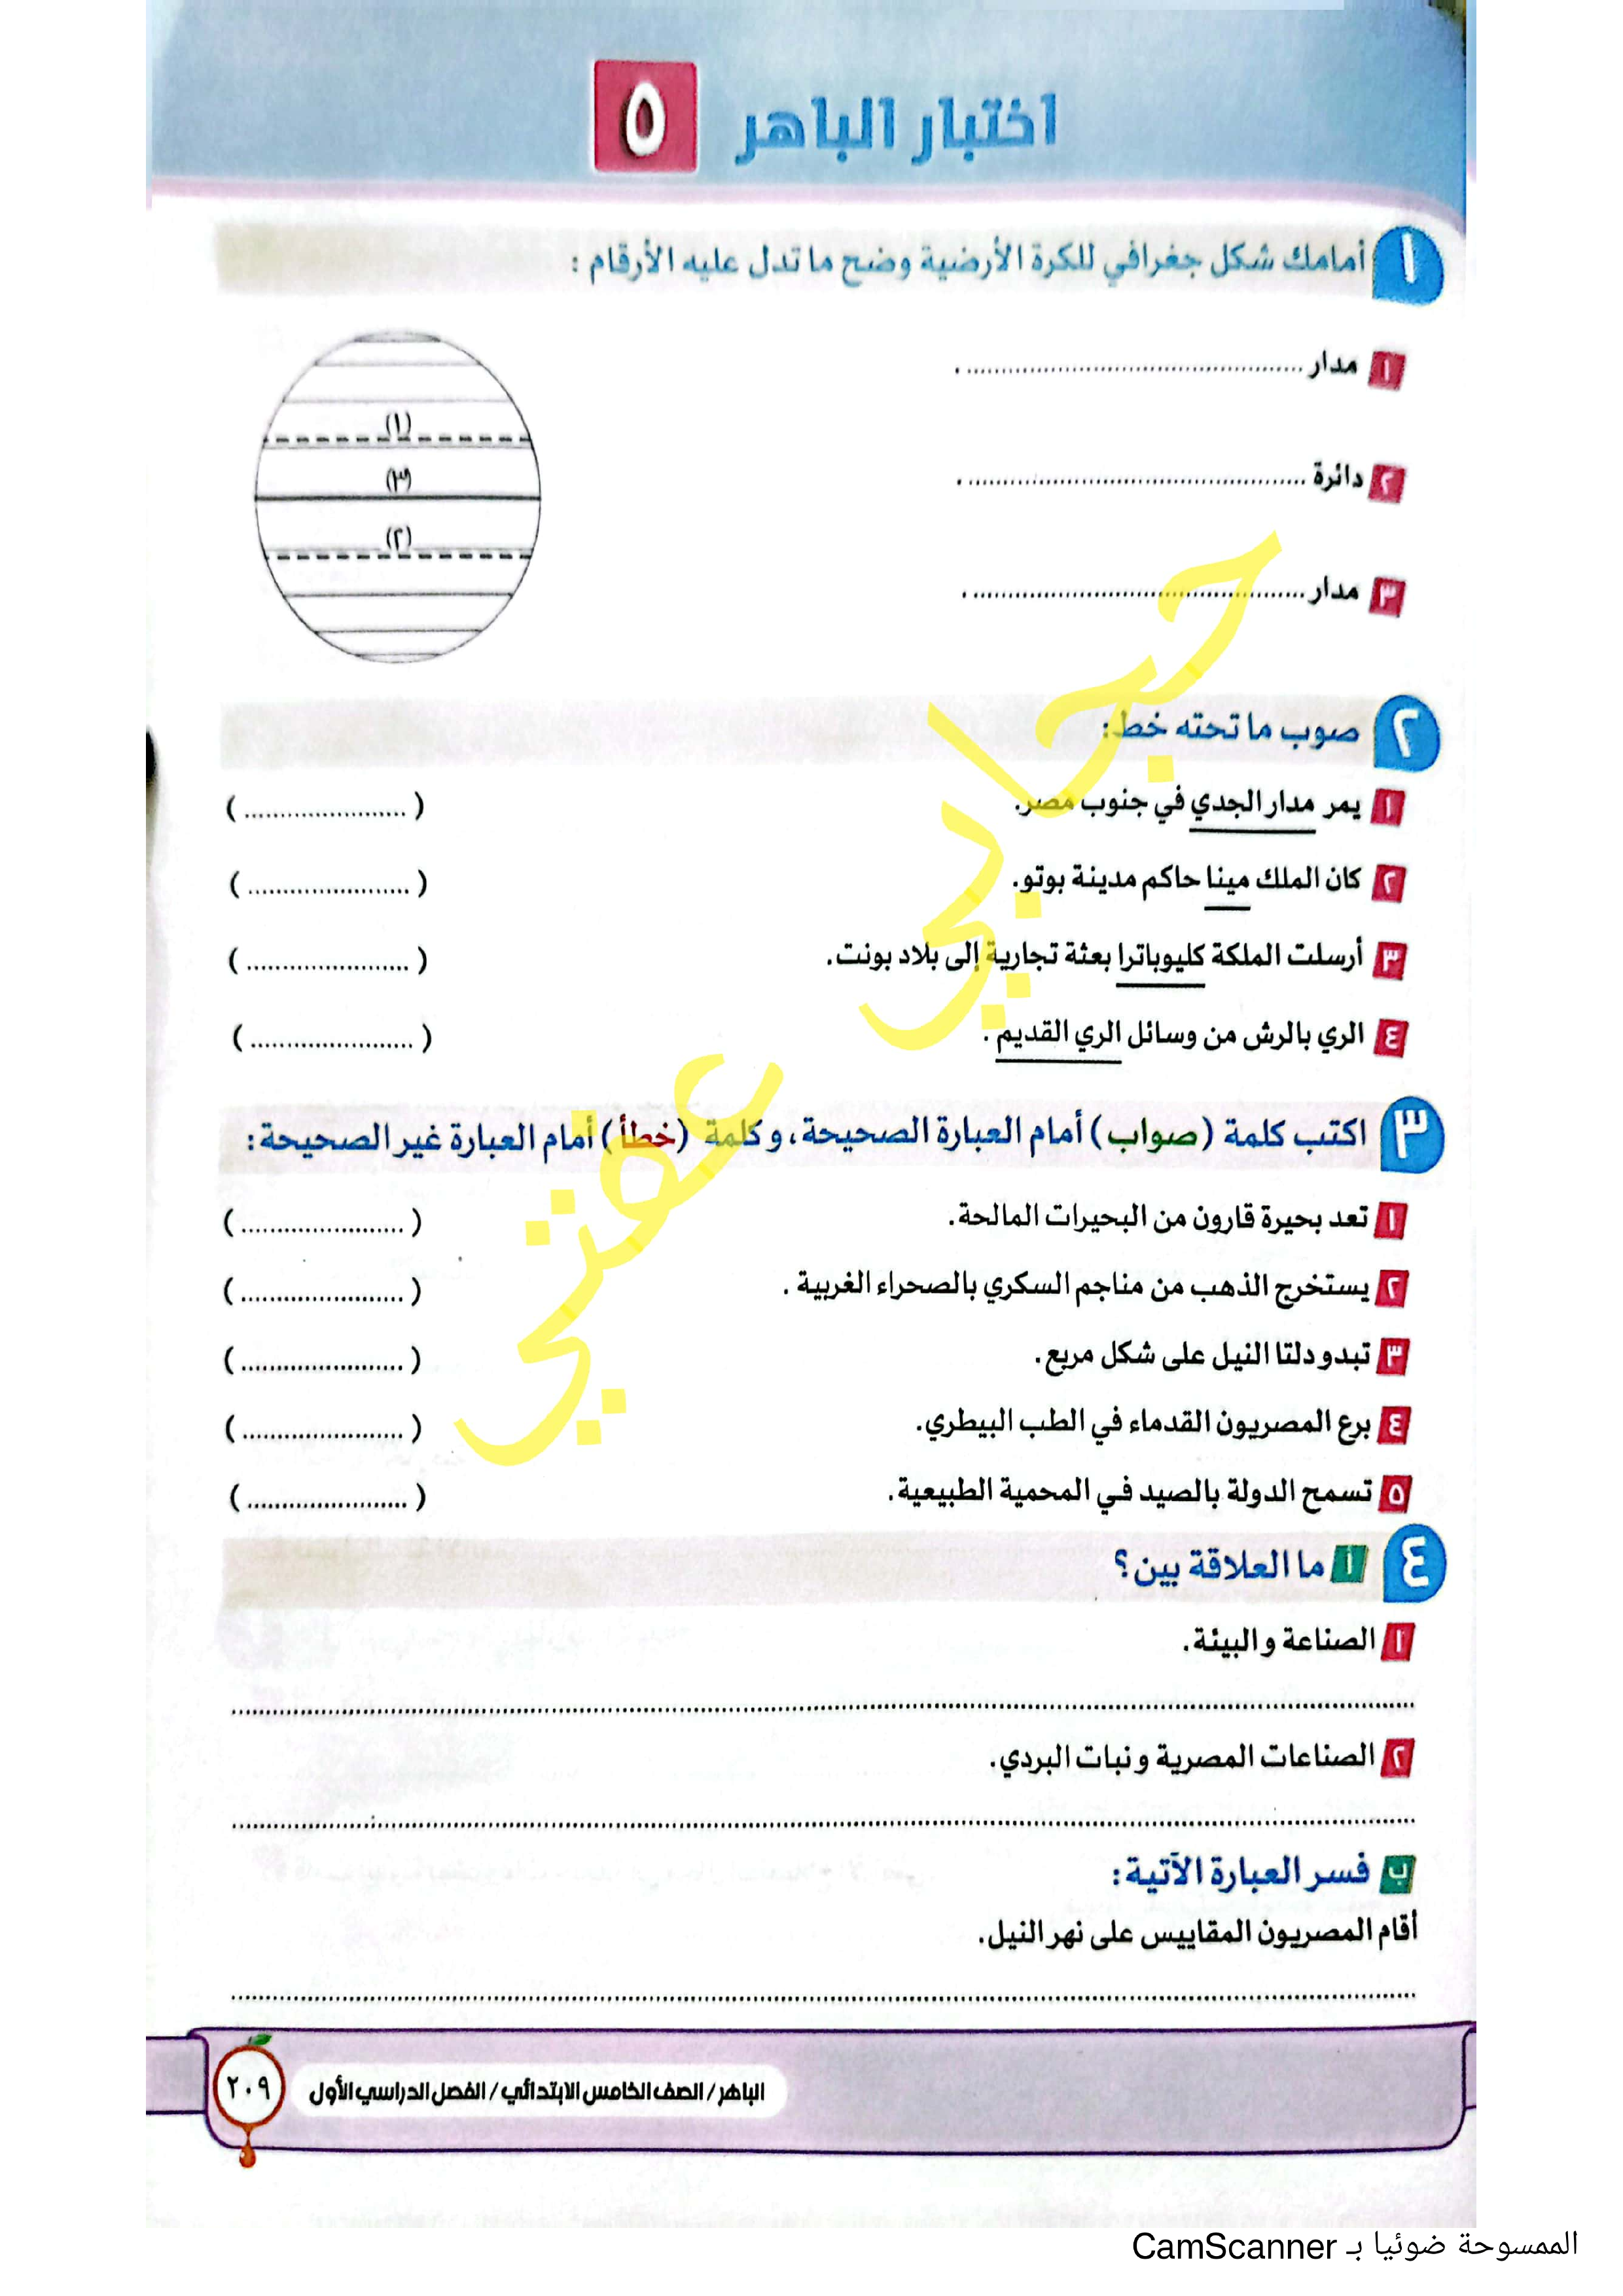 اختبار الباهر ٥
١ أمامك شكل جغرافي للكرة الأرضية وضح ما تدل عليه الأرقام :
١ مدار ..............................................
٢ دائرة ..............................................
٣ مدار ..............................................
(١)
(٣)
(٢)
٢ صوب ما تحته خط :
١ يمر مدار الجدي في جنوب مصر. (......................)
٢ كان الملك مينا حاكم مدينة بوتو. (......................)
٣ أرسلت الملكة كليوباترا بعثة تجارية إلى بلاد بونت. (......................)
٤ الري بالرش من وسائل الري القديم . (......................)
٣ اكتب كلمة (صواب) أمام العبارة الصحيحة، وكلمة (خطأ) أمام العبارة غير الصحيحة:
١ تعد بحيرة قارون من البحيرات المالحة. (......................)
٢ يستخرج الذهب من مناجم السكري بالصحراء الغربية . (......................)
٣ تبدو دلتا النيل على شكل مربع. (......................)
٤ برع المصريون القدماء في الطب البيطري. (......................)
٥ تسمح الدولة بالصيد في المحمية الطبيعية. (......................)
٤ أ ما العلاقة بين؟
١ الصناعة والبيئة.
٢ الصناعات المصرية ونبات البردي.
ب فسر العبارة الآتية:
أقام المصريون المقاييس على نهر النيل.
الباهر / الصف الخامس الابتدائي / الفصل الدراسي الأول
٢٠٩
الممسوحة ضوئيا بـ CamScanner